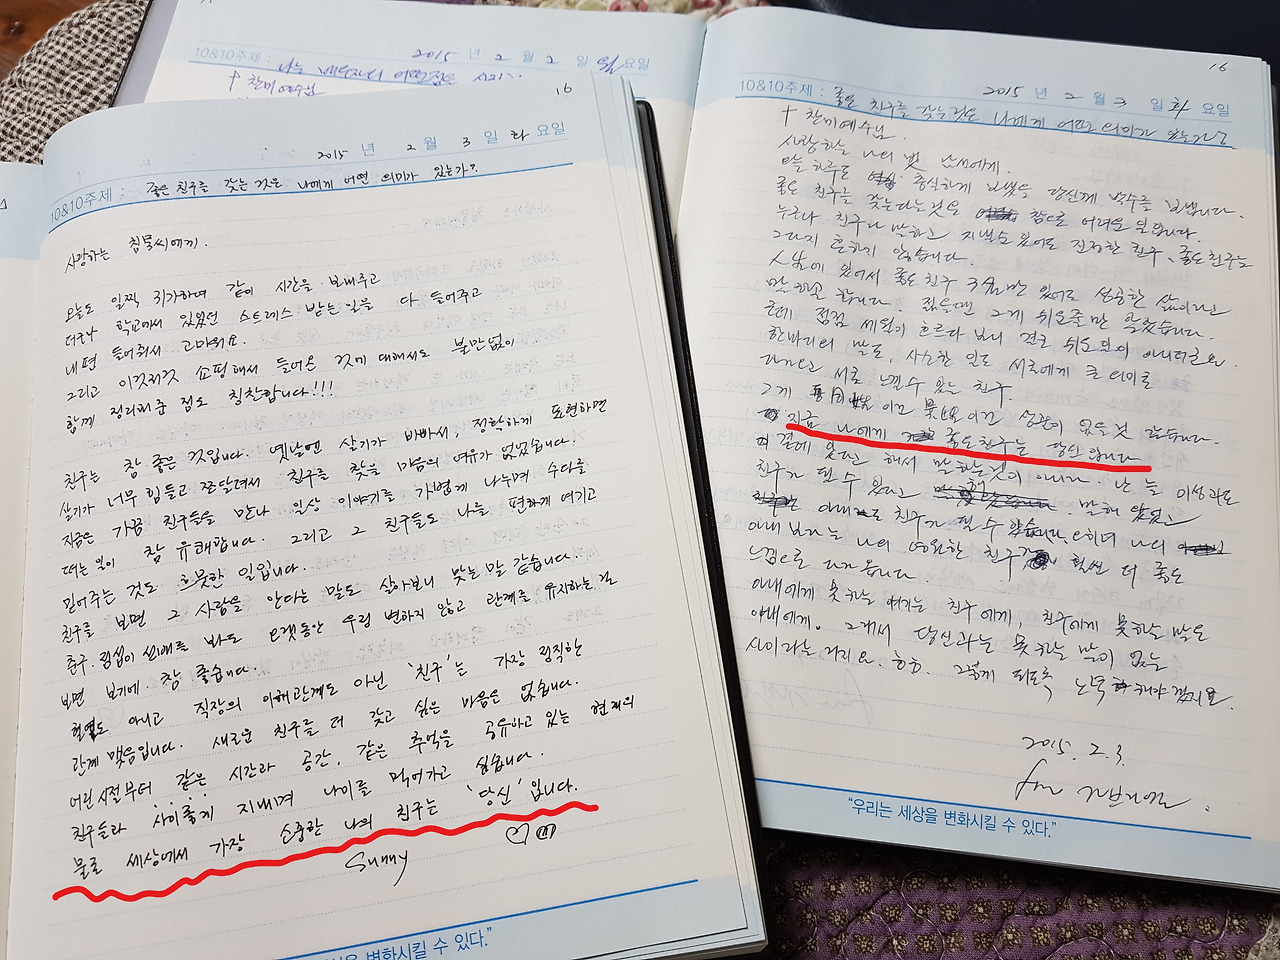 16
2015 년 2 월 3 일 화 요일
10&10주제 : 좋은 친구를 갖는 것은 나에게 어떤 의미가 있는가?
사랑하는 침묵씨에게.
오늘도 일찍 귀가하며 같이 시간을 보내주고
더구나 학교에서 있었던 스트레스 받는 일을 다 들어주고
내편 들어줘서 고마워요.
그리고 이것저것 쇼핑해서 들어온 것에 대해서도 불만없이
함께 정리해준 점도 칭찬합니다!!!
친구는 참 좋은 것입니다. 옛날엔 살기가 바빠서, 정확하게 표현하면
살기가 너무 힘들고 쪼달려서 친구를 찾을 마음의 여유가 없었습니다.
지금은 가끔 친구들을 만나 일상 이야기를 가볍게 나누며 수다를
떠는 일이 참 유쾌합니다. 그리고 그 친구들도 나를 편하게 여기고
믿어주는 것도 흐뭇한 일입니다.
친구를 보면 그 사람을 안다는 말도 살아보니 맞는 말 같습니다.
춘구. 림섭이 선배를 봐도 오랫동안 우정 변하지 않고 관계를 유지하는 걸
보면 보기에 참 좋습니다.
혈연도 아니고 직장의 이해관계도 아닌 '친구'는 가장 정직한
관계 맺음입니다. 새로운 친구를 더 갖고 싶은 마음은 없습니다.
어린 시절부터 같은 시간과 공간, 같은 추억을 공유하고 있는 현재의
친구들과 사이좋게 지내며 나이를 먹어가고 싶습니다.
물론 세상에서 가장 소중한 나의 친구는 '당신'입니다.
Sunny ♡
변화시킬 수 있다."
2015 년 2 월 2 일 월 요일
10&10주제 : 나는
†찬미예수님
16
2015 년 2 월 3 일 화 요일
10&10주제 : 좋은 친구를 갖는것은 나에게 어떤 의미가 있는가?
†찬미예수님.
사랑하는 나의 벗 에게.
오늘 하루도 충실하게 보냈을 당신께 박수를 보냅니다.
좋은 친구를 갖는다는것은 참으로 어려운 일입니다.
누구나 친구라 말하고 지낼순 있어도 진정한 친구, 좋은친구는
그다지 흔하지 않습니다.
人生에 있어서 좋은 친구 3명만 있어도 성공한 삶이라고
말하곤 합니다. 젊을땐 그게 쉬운줄만 알았습니다.
근데 점점 세월이 흐르다 보니 결코 쉬운일이 아니더군요.
한마디의 말도, 사소한 일도 서로에게 큰 의미로
다가오고 서로 느낄수 있는 친구.
그게 이건 이건 상관이 없을것 같습니다.
지금 나에게 좋은친구는 당신입니다
곁에 있다고 해서 말하는것이 아니라. 난 늘 이성과도
친구가 될 수 있다고 말해 왔었고
아내도 친구가 될 수 있습니다. 오히려 나의
아내보다는 나의 영원한 친구가 훨씬 더 좋은
느낌으로 다가옵니다
아내에게 못하는 얘기는 친구에게, 친구에게 못하는 말은
아내에게. 그래서 당신과는 못하는 말이 없는
사이라는 거지요. ㅎㅎ. 그렇게 되도록 노력해야겠지요.
2015. 2. 3.
from
"우리는 세상을 변화시킬 수 있다."